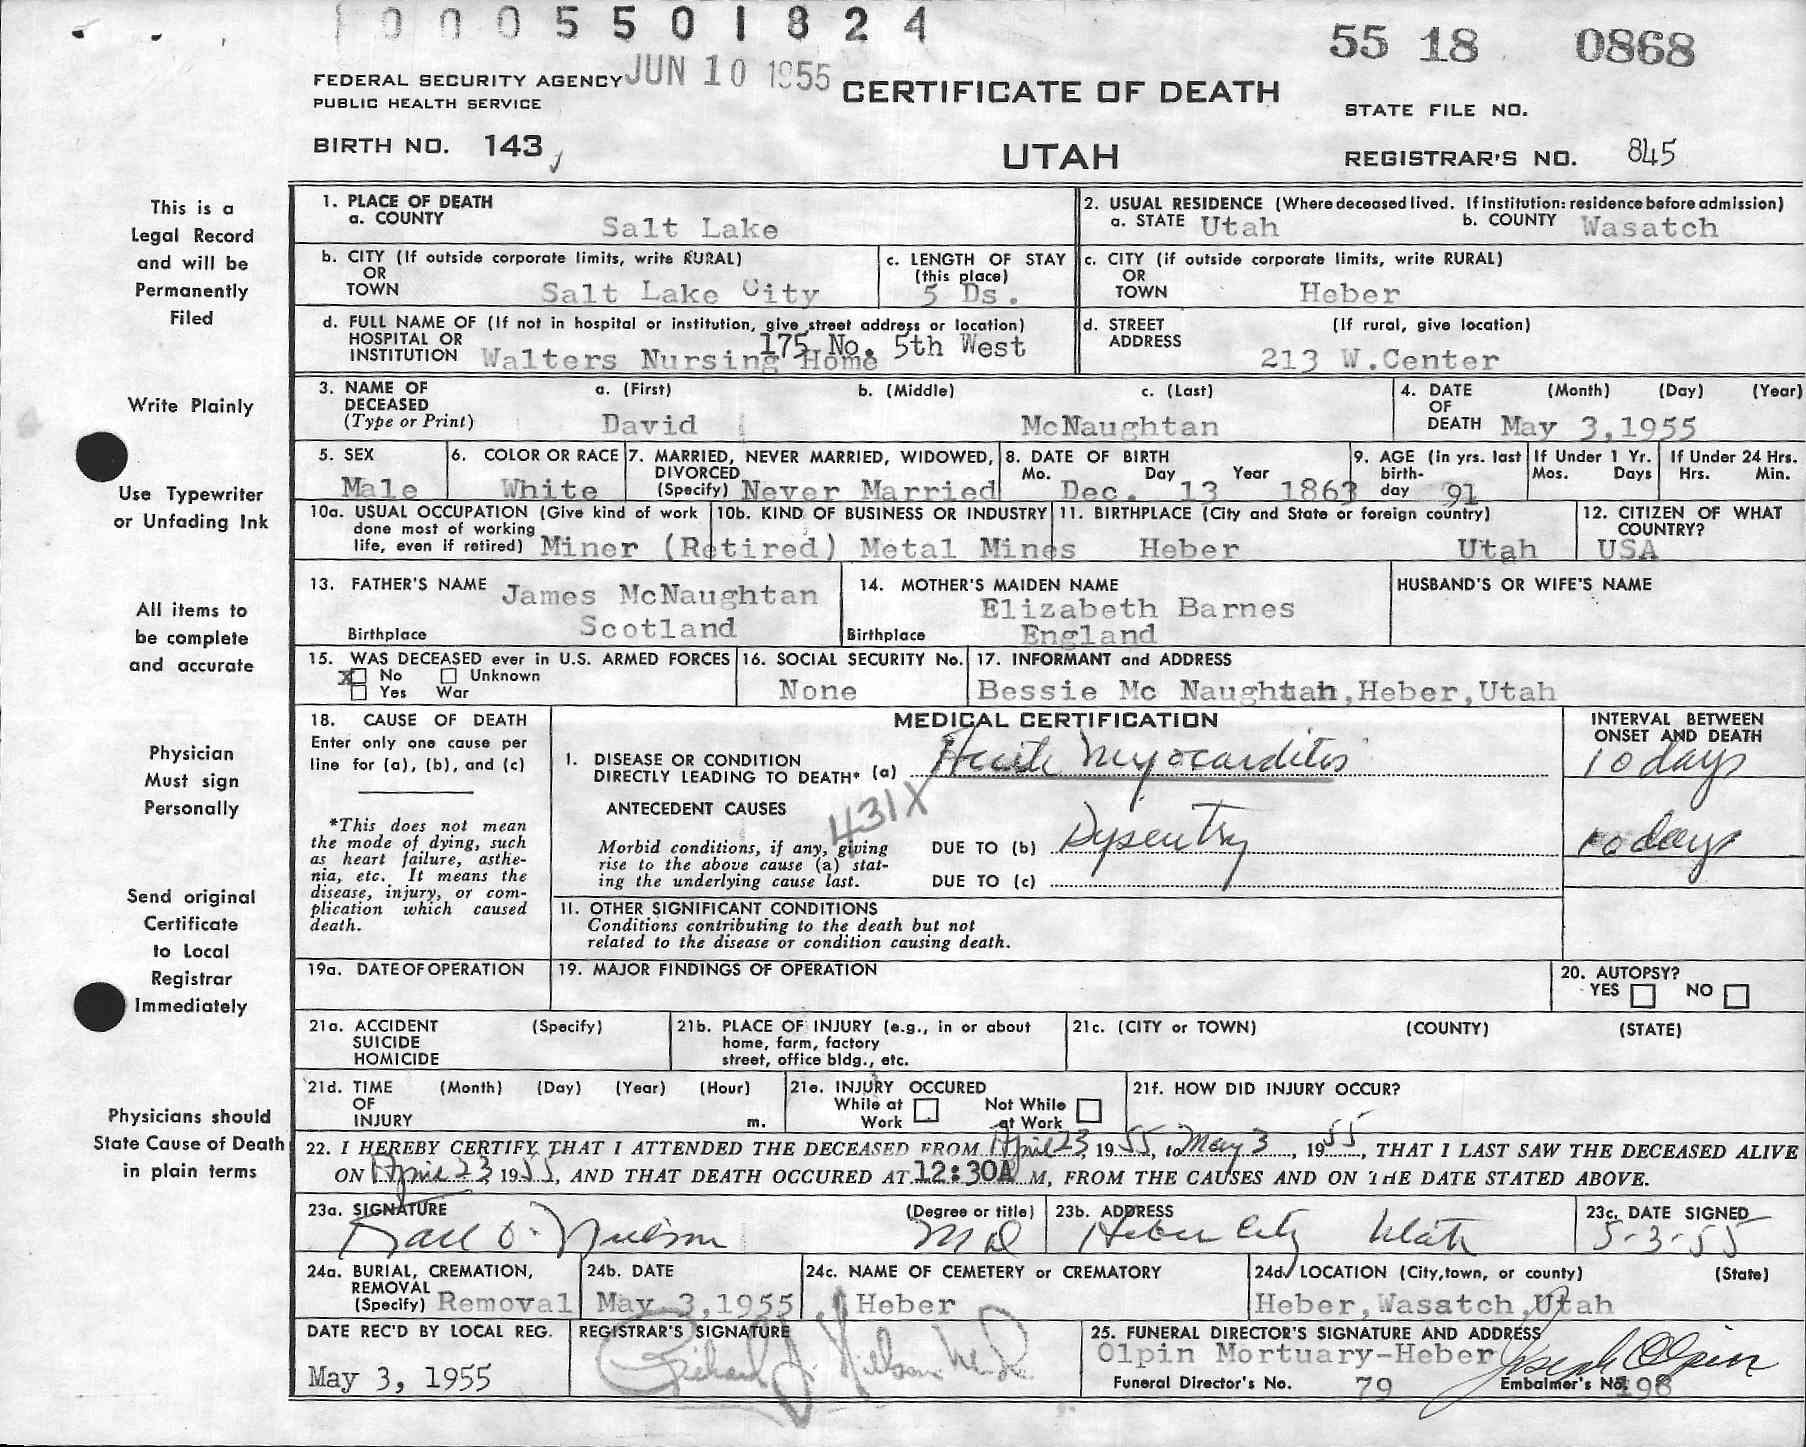 1000 5501824
55 18 0868
FEDERAL SECURITY AGENCY JUN 10 1955 CERTIFICATE OF DEATH
PUBLIC HEALTH SERVICE
STATE FILE NO.
BIRTH NO. 143
UTAH
REGISTRAR'S NO. 845
This is a
Legal Record
and will be
Permanently
Filed
Write Plainly
Use Typewriter
or Unfading Ink
All items to
be complete
and accurate
Physician
Must sign
Personally
Send original
Certificate
to Local
Registrar
Immediately
Physicians should
State Cause of Death
in plain terms
1. PLACE OF DEATH
a. COUNTY Salt Lake
2. USUAL RESIDENCE (Where deceased lived. If institution: residence before admission)
a. STATE Utah b. COUNTY Wasatch
b. CITY (If outside corporate limits, write RURAL)
OR
TOWN Salt Lake City
c. LENGTH OF STAY
(this place)
5 Ds.
c. CITY (if outside corporate limits, write RURAL)
OR
TOWN Heber
d. FULL NAME OF (If not in hospital or institution, give street address or location)
HOSPITAL OR
INSTITUTION Walters Nursing Home 175 No. 5th West
d. STREET (If rural, give location)
ADDRESS
213 W.Center
3. NAME OF a. (First) b. (Middle) c. (Last)
DECEASED
(Type or Print) David McNaughtan
4. DATE (Month) (Day) (Year)
OF
DEATH May 3,1955
5. SEX
Male
6. COLOR OR RACE
White
7. MARRIED, NEVER MARRIED, WIDOWED,
DIVORCED
(Specify) Never Married
8. DATE OF BIRTH
Mo. Day Year
Dec. 13 1863
9. AGE (In yrs. last
birth-
day 91
If Under 1 Yr.
Mos. Days
If Under 24 Hrs.
Hrs. Min.
10a. USUAL OCCUPATION (Give kind of work
done most of working
life, even if retired) Miner (Retired)
10b. KIND OF BUSINESS OR INDUSTRY
Metal Mines
11. BIRTHPLACE (City and State or foreign country)
Heber Utah
12. CITIZEN OF WHAT
COUNTRY?
USA
13. FATHER'S NAME James McNaughtan
Birthplace Scotland
14. MOTHER'S MAIDEN NAME
Elizabeth Barnes
Birthplace England
HUSBAND'S OR WIFE'S NAME
15. WAS DECEASED ever in U.S. ARMED FORCES
X No Unknown
Yes War
16. SOCIAL SECURITY No.
None
17. INFORMANT and ADDRESS
Bessie Mc Naughtan,Heber,Utah
18. CAUSE OF DEATH
Enter only one cause per
line for (a), (b), and (c)
*This does not mean
the mode of dying, such
as heart failure, asthe-
nia, etc. It means the
disease, injury, or com-
plication which caused
death.
MEDICAL CERTIFICATION
INTERVAL BETWEEN
ONSET AND DEATH
I. DISEASE OR CONDITION
DIRECTLY LEADING TO DEATH* (a) Acute Myocarditis 10 days
ANTECEDENT CAUSES
431X
Morbid conditions, if any, giving
rise to the above cause (a) stat-
ing the underlying cause last.
DUE TO (b) Dysentry 10 days
DUE TO (c)
11. OTHER SIGNIFICANT CONDITIONS
Conditions contributing to the death but not
related to the disease or condition causing death.
19a. DATE OF OPERATION
19. MAJOR FINDINGS OF OPERATION
20. AUTOPSY?
YES NO
21a. ACCIDENT (Specify)
SUICIDE
HOMICIDE
21b. PLACE OF INJURY (e.g., in or about
home, farm, factory
street, office bldg., etc.
21c. (CITY or TOWN) (COUNTY) (STATE)
21d. TIME (Month) (Day) (Year) (Hour)
OF
INJURY m.
21e. INJURY OCCURED
While at Not While
Work at Work
21f. HOW DID INJURY OCCUR?
22. I HEREBY CERTIFY THAT I ATTENDED THE DECEASED FROM April 23 1955, to May 3, 1955, THAT I LAST SAW THE DECEASED ALIVE
ON April 23 1955, AND THAT DEATH OCCURED AT 12:30A M, FROM THE CAUSES AND ON THE DATE STATED ABOVE.
23a. SIGNATURE (Degree or title)
Karl O. Nielson MD
23b. ADDRESS
Heber City Utah
23c. DATE SIGNED
5-3-55
24a. BURIAL, CREMATION,
REMOVAL
(Specify) Removal
24b. DATE
May 3,1955
24c. NAME OF CEMETERY or CREMATORY
Heber
24d. LOCATION (City,town, or county) (State)
Heber,Wasatch,Utah
DATE REC'D BY LOCAL REG.
May 3, 1955
REGISTRAR'S SIGNATURE
Richard J. Nielson
25. FUNERAL DIRECTOR'S SIGNATURE AND ADDRESS
Olpin Mortuary-Heber Joseph Olpin
Funeral Director's No. 79 Embalmer's No. 198